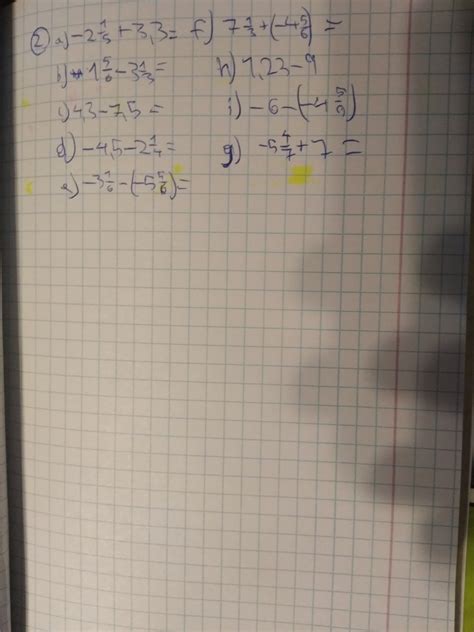 ② a) -2 1/3 + 3,3 = f) 7 1/3 + (-4 5/6) =
b) 1 5/6 - 3 1/3 = h) 1,23 - 9
c) 4,3 - 7,5 = i) -6 - (-4 5/9)
d) -4,5 - 2 1/4 = g) -5 4/7 + 7 =
e) -3 1/6 - (-5 5/6) =